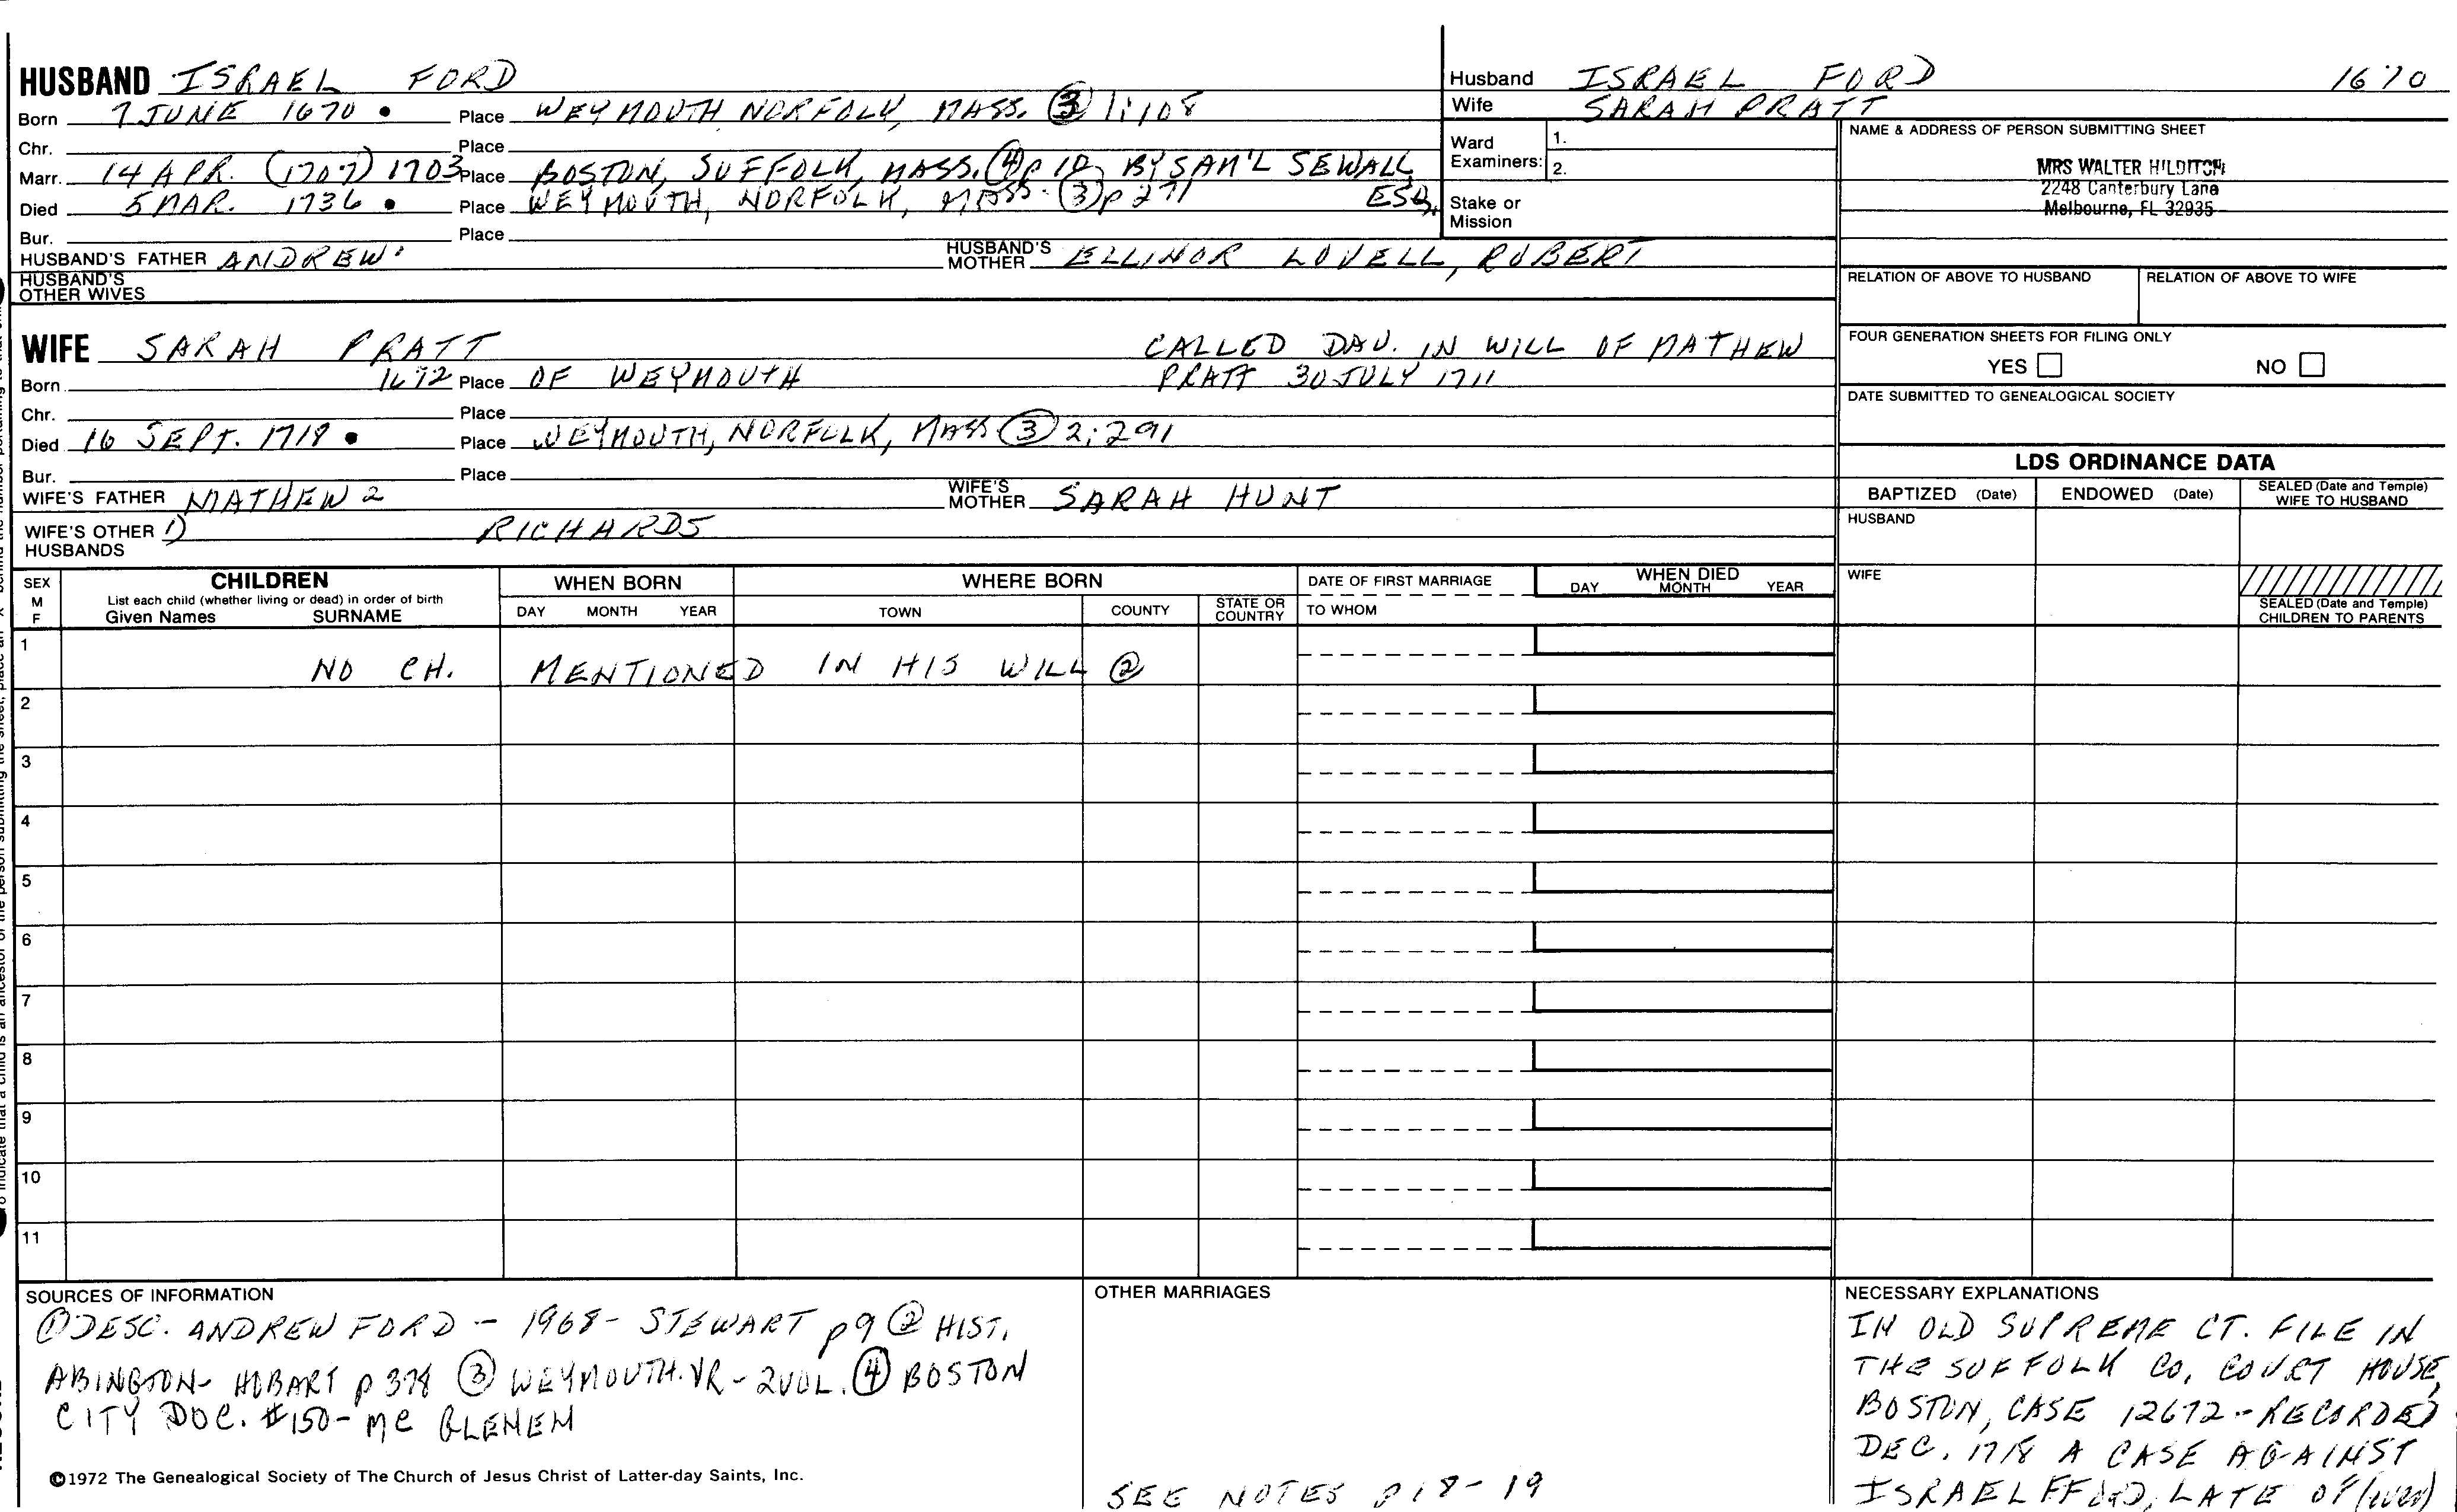 HUSBAND ISRAEL FORD
Born 7 JUNE 1670 • Place WEYMOUTH NORFOLK, MASS. ③ 1:108
Chr. Place
Marr. 14 APR. (1707) 1703 Place BOSTON, SUFFOLK, MASS. ④ p 10, BY SAM'L SEWALL ESQ.
Died 5 MAR. 1736 • Place WEYMOUTH, NORFOLK, MASS. ③ p 271
Bur. Place
HUSBAND'S FATHER ANDREW' HUSBAND'S MOTHER ELLINOR LOVELL, ROBERT
HUSBAND'S OTHER WIVES
Husband ISRAEL FORD 1670
Wife SARAH PRATT
Ward Examiners: 1.
2.
Stake or Mission
NAME & ADDRESS OF PERSON SUBMITTING SHEET
MRS WALTER HILDITCH
2248 Canterbury Lane
Melbourne, FL 32935
RELATION OF ABOVE TO HUSBAND RELATION OF ABOVE TO WIFE
FOUR GENERATION SHEETS FOR FILING ONLY
YES NO
DATE SUBMITTED TO GENEALOGICAL SOCIETY
WIFE SARAH PRATT CALLED DAU. IN WILL OF MATHEW
Born 1672 Place OF WEYMOUTH PRATT 30 JULY 1711
Chr. Place
Died 16 SEPT. 1718 • Place WEYMOUTH, NORFOLK, MASS ③ 2:291
Bur. Place
WIFE'S FATHER MATHEW 2 WIFE'S MOTHER SARAH HUNT
WIFE'S OTHER HUSBANDS 1) RICHARDS
LDS ORDINANCE DATA
BAPTIZED (Date) ENDOWED (Date) SEALED (Date and Temple) WIFE TO HUSBAND
HUSBAND
WIFE
SEALED (Date and Temple) CHILDREN TO PARENTS
SEX M F
CHILDREN
List each child (whether living or dead) in order of birth
Given Names SURNAME
WHEN BORN
DAY MONTH YEAR
WHERE BORN
TOWN COUNTY STATE OR COUNTRY
DATE OF FIRST MARRIAGE
TO WHOM
WHEN DIED
DAY MONTH YEAR
1 NO CH. MENTIONED IN HIS WILL ②
2
3
4
5
6
7
8
9
10
11
SOURCES OF INFORMATION
① DESC. ANDREW FORD - 1968 - STEWART p 9 ② HIST.
ABINGTON - HOBART p 378 ③ WEYMOUTH. VR - 2 VOL. ④ BOSTON
CITY DOC. #150 - MC GLENEN
©1972 The Genealogical Society of The Church of Jesus Christ of Latter-day Saints, Inc.
OTHER MARRIAGES
SEE NOTES p 18 - 19
NECESSARY EXPLANATIONS
IN OLD SUPREME CT. FILE IN
THE SUFFOLK CO, COURT HOUSE,
BOSTON, CASE 12672 - RECORDED
DEC. 1718 A CASE AGAINST
ISRAEL FFORD, LATE OF (over)